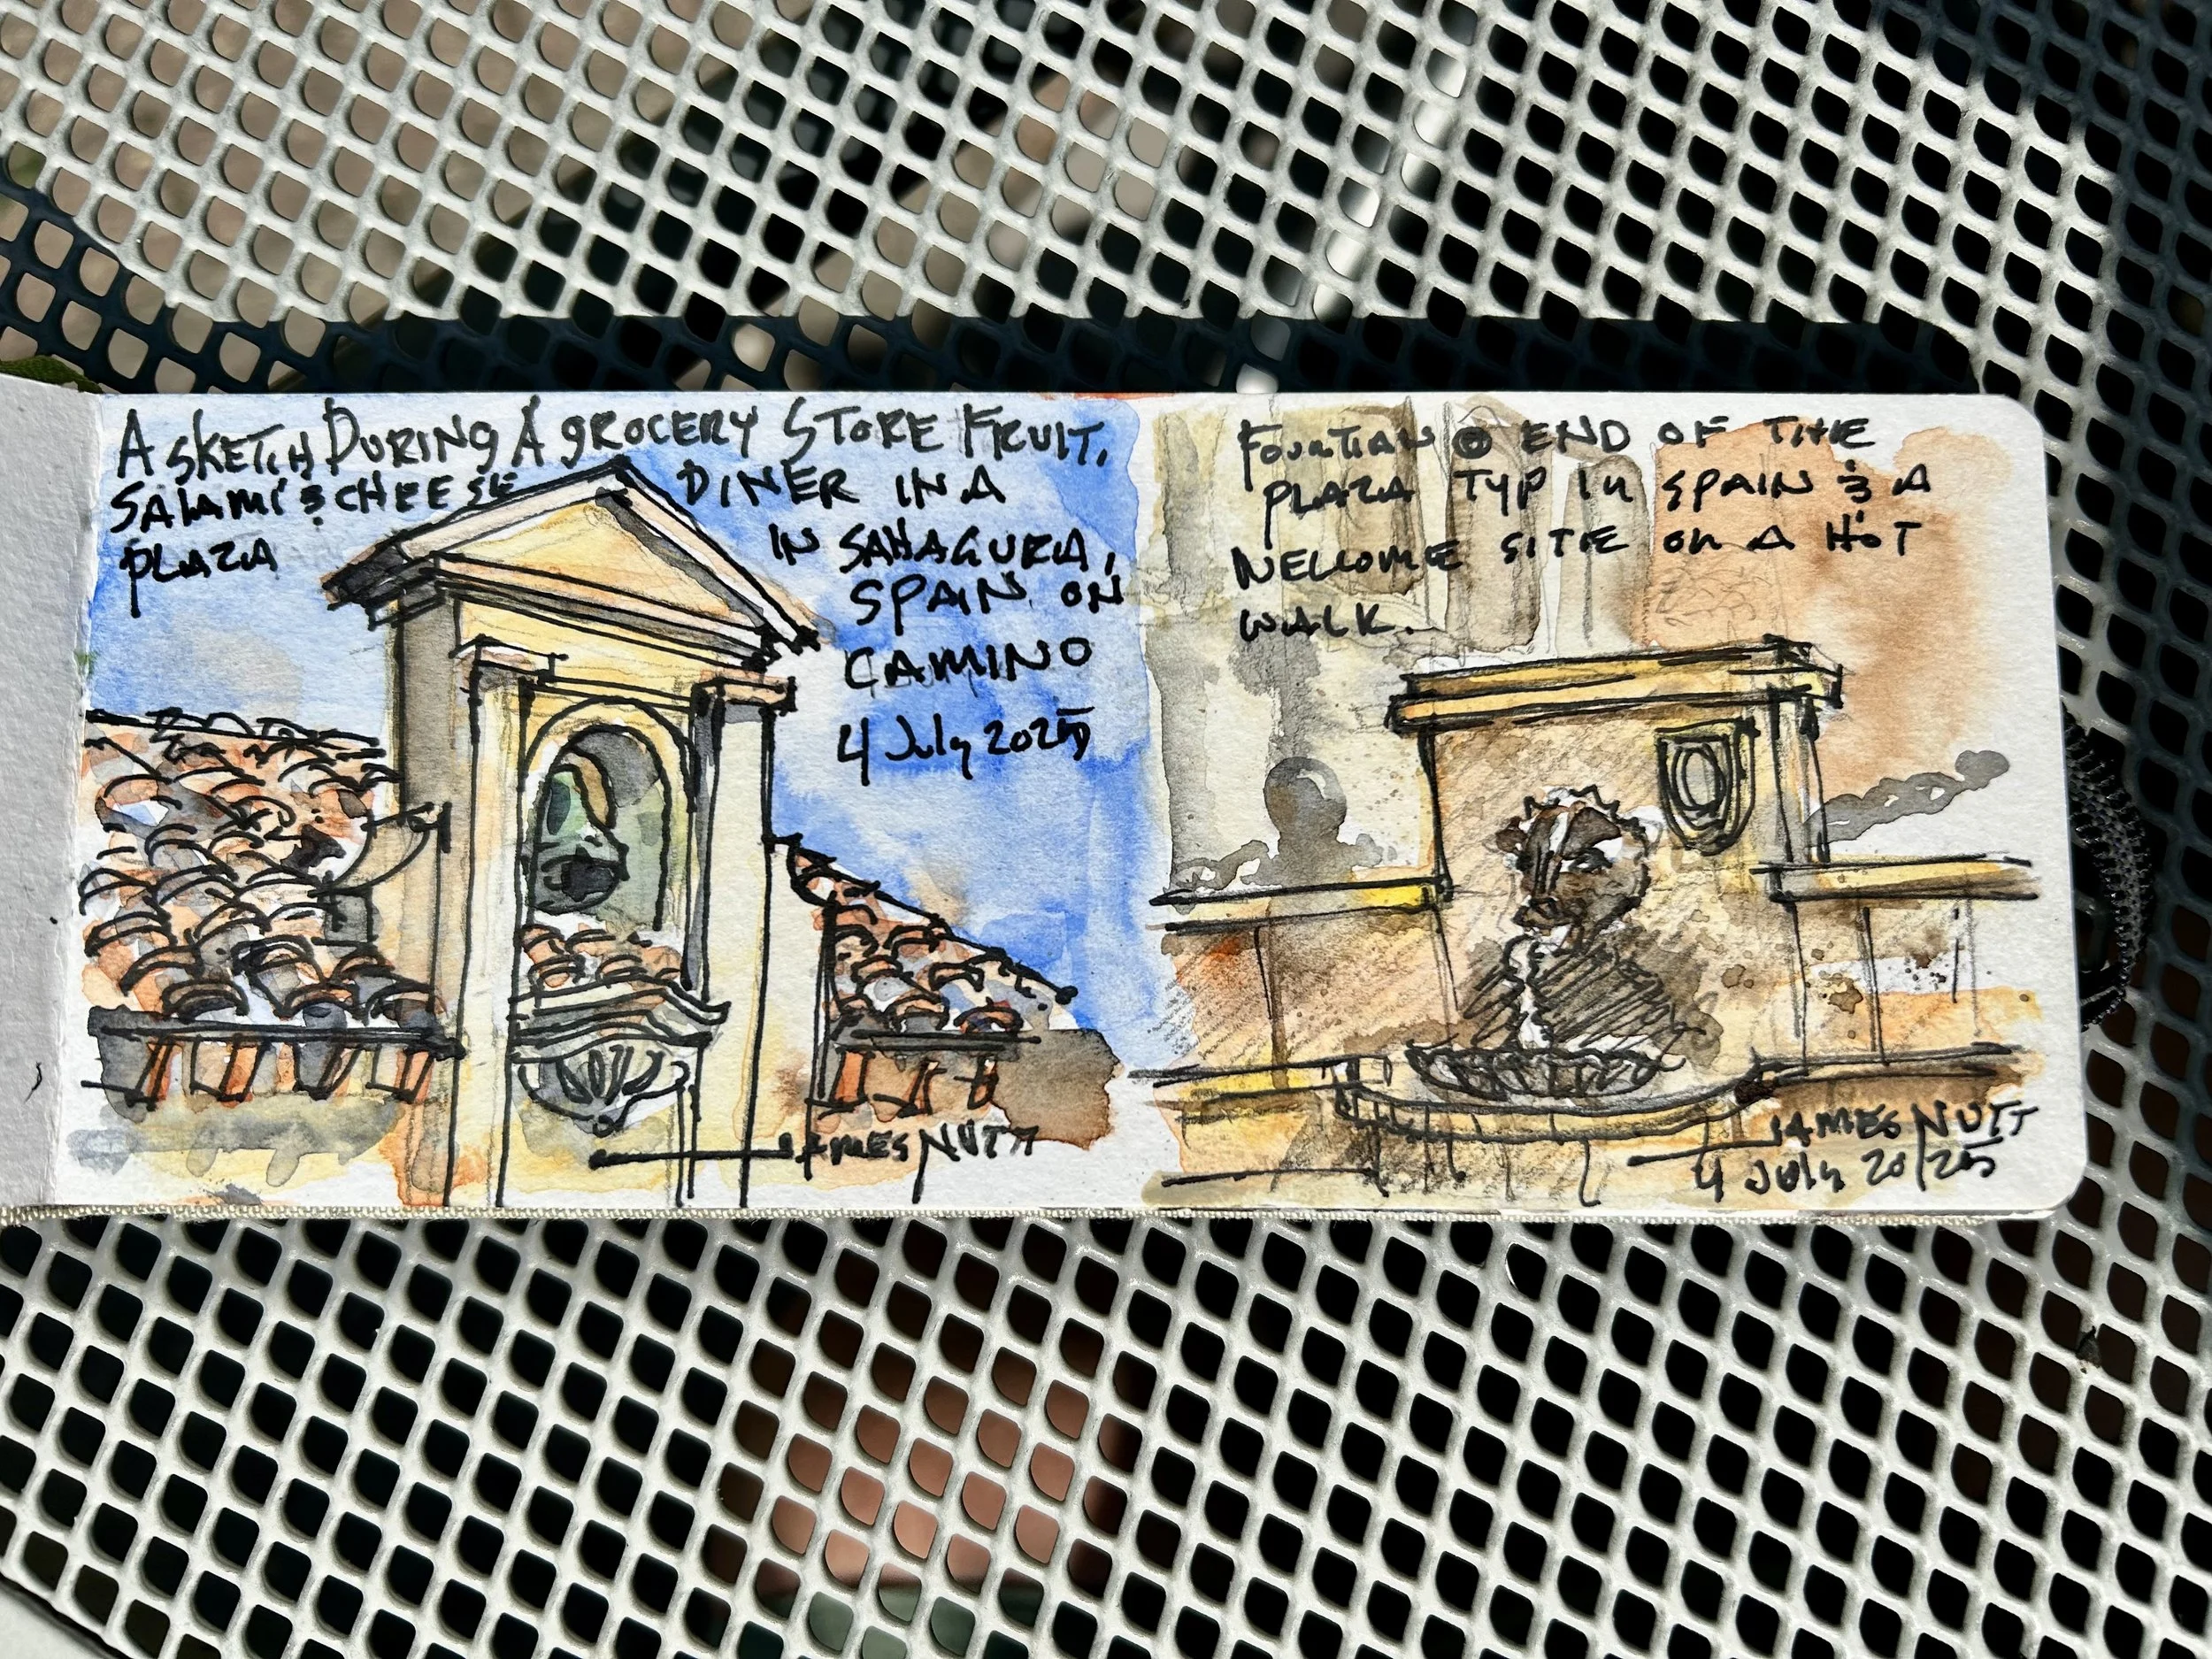 A SKETCH DURING A GROCERY STORE FRUIT,
SALAMI & CHEESE DINER IN A
PLAZA IN SAHAGURA,
SPAIN ON
CAMINO
4 July 2025
JAMES NUTT
FOUNTIAN @ END OF THE
PLAZA TYP IN SPAIN & A
WELLOME SITE ON A HOT
WALK.
JAMES NUTT
4 July 20/25